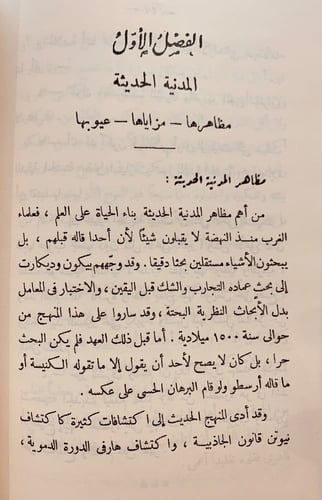 الفصل الأول
المدنية الحديثة
مظاهرها — مزاياها — عيوبها
مظاهر المدنية الحديثة :
من أهم مظاهر المدنية الحديثة بناء الحياة على العلم ، فعلماء
الغرب منذ النهضة لا يقبلون شيئًا لأن أحدا قاله قبلهم ، بل
يبحثون الأشياء مستقلين بحثا دقيقا . وقد وجههم بيكون وديكارت
إلى بحث عماده التجارب والشك قبل اليقين ، والاختبار فى المعامل
بدل الأبحاث النظرية البحتة ، وقد ساروا على هذا المنهج من
حوالى سنة ١٥٠٠ ميلادية . أما قبل ذلك العهد فلم يكن البحث
حرا ، بل كان لا يصح لأحد أن يقول إلا ما تقوله الكنيسة أو
ما قاله أرسطو ولو قام البرهان الحسى على عكسه .
وقد أدى المنهج الحديث إلى اكتشافات كثيرة كاكتشاف
نيوتن قانون الجاذبيـة ، واكتشاف هارفى الدورة الدموية ،